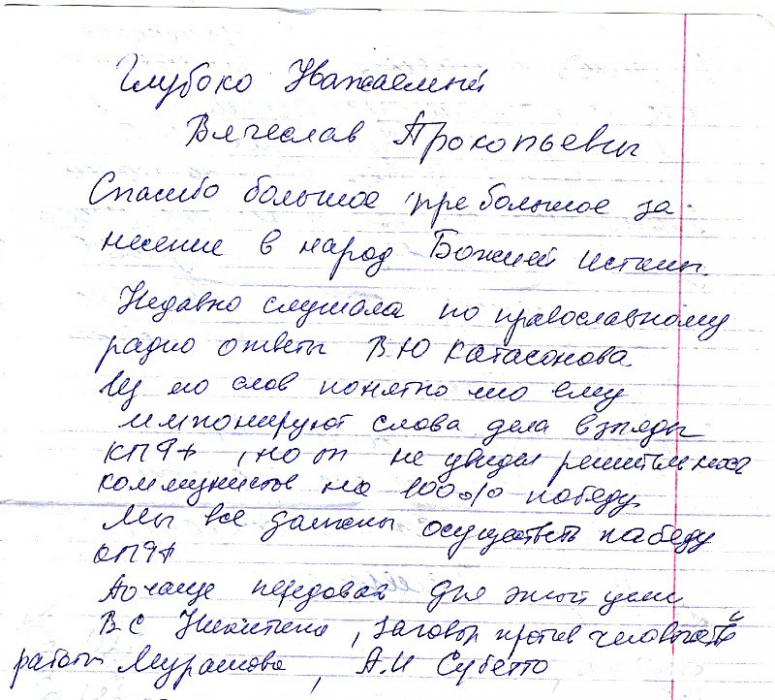 Глубоко Уважаемый
Вячеслав Прокопьевич
Спасибо большое пребольшое за
несение в народ Божией истины.
Недавно слушала по православному
радио ответы В Ю Катасонова
Из его слов понятно что ему
импонируют слова дела взгляды
КПРФ, но он не увидел решительных
коммунистов на 100% победу
Мы все должны осуществить победу
КПРФ
почаще передовая Для этой цели
ВС Никитина, заговор против человечества
работы Мурашова, А.И Субетто